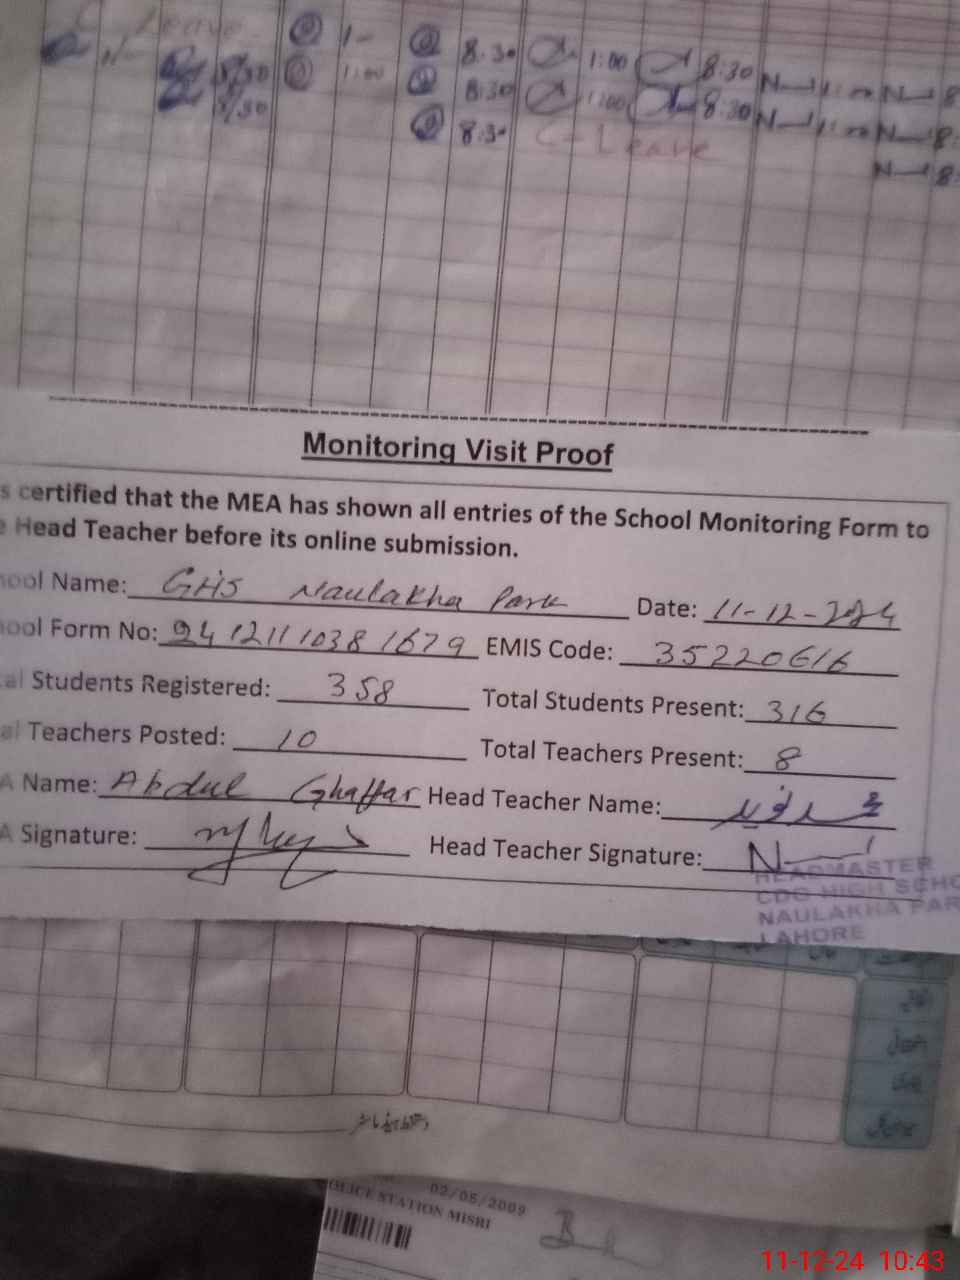 Leave
1- 8:30 1:00 8:30 N 1:00 N 8
8/30 1:00 8:30 1:00 8:30 N 1:00 N 8:
8/30 8:30 C-Leave
N 8:
Monitoring Visit Proof
s certified that the MEA has shown all entries of the School Monitoring Form to
e Head Teacher before its online submission.
hool Name: GHS Naulakha Park Date: 11-12-2024
hool Form No: 24121110381679 EMIS Code: 35220616
tal Students Registered: 358 Total Students Present: 316
al Teachers Posted: 10 Total Teachers Present: 8
A Name: Abdul Ghaffar Head Teacher Name:
A Signature: Head Teacher Signature: N
HEADMASTER
CDG HIGH SCHO
NAULAKHA PAR
LAHORE
02/05/2009
OLICE STATION MISRI
11-12-24 10:43